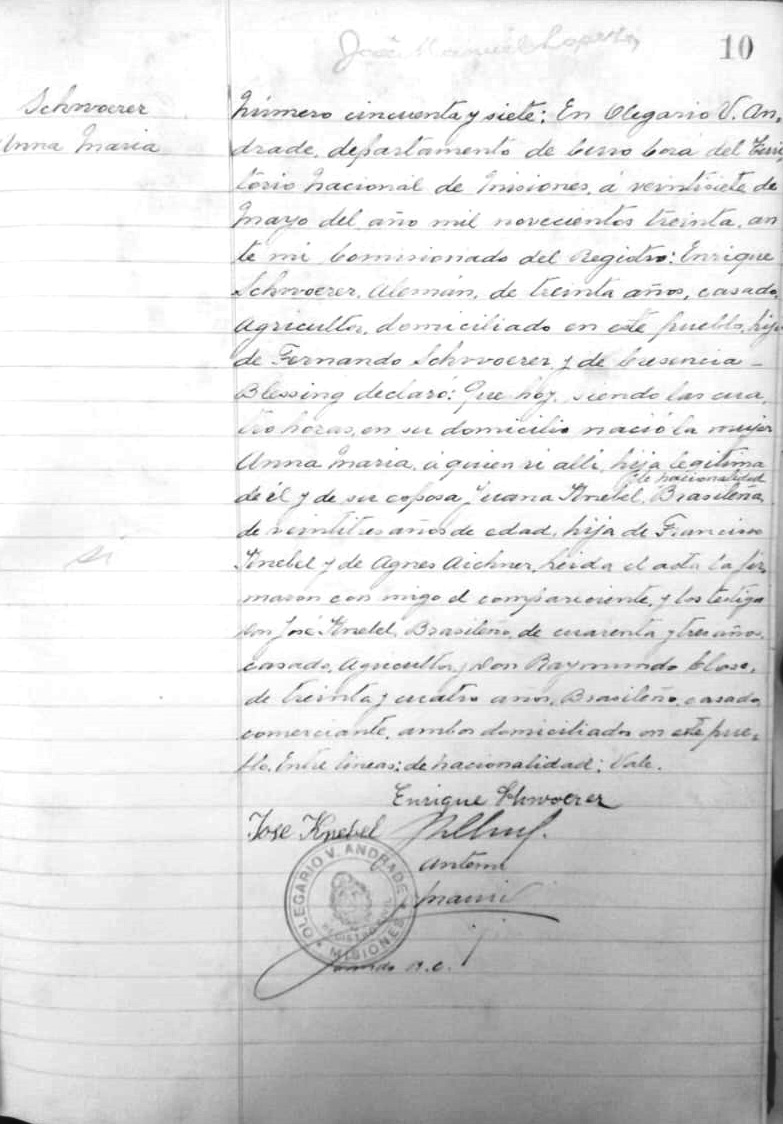 José Manuel
10
Schwoerer
Anna Maria
Número cincuenta y siete: En Olegario V. An-
drade, departamento de Cerro Corá del Terri
torio Nacional de Misiones, á veintisiete de
Mayo del año mil novecientos treinta, an
te mi Comisionado del Registro: Enrique
Schwoerer, Alemán, de treinta años, casado
Agricultor, domiciliado en este pueblo, hijo
de Fernando Schwoerer y de Cresencia
Blessing declaró: Que hoy, siendo las cua
tro horas, en su domicilio nació la mujer
Anna Maria, á quien vi alli, hija legitima
de nacionalidad
de él y de su esposa Juana Knebel, Brasileña,
de veintitres años de edad, hija de Francisco
Knebel y de Agnes Aichner, leida el acta la fir
maron con migo el compareciente, y los testigos
Don José Knebel, Brasileño, de cuarenta y tres años,
casado, Agricultor, y Don Raymundo
de treinta y cuatro años, Brasileño, casado,
comerciante, ambos domiciliados en este pue-
blo. Entre lineas: de nacionalidad: Vale.
si
Enrique Schwoerer
Jose Knebel
OLEGARIO V. ANDRADE
REGISTRO CIVIL
MISIONES